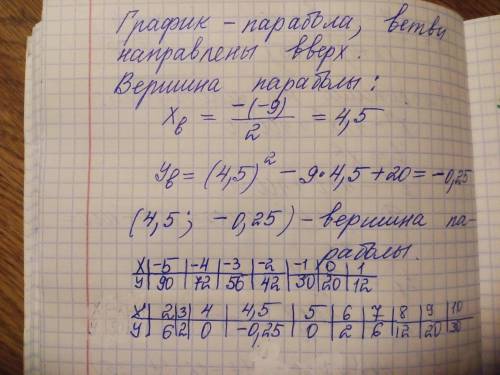 График - парабола, ветви
направлены вверх.
Вершина параболы:
Xв = -(-9)/2 = 4,5
Yв = (4,5)² - 9·4,5 + 20 = -0,25
(4,5; -0,25) - вершина па-
раболы.
X | -5 | -4 | -3 | -2 | -1 | 0 | 1
У | 90 | 72 | 56 | 42 | 30 | 20 | 12
X | 2 | 3 | 4 | 4,5 | 5 | 6 | 7 | 8 | 9 | 10
У | 6 | 2 | 0 | -0,25 | 0 | 2 | 6 | 12 | 20 | 30